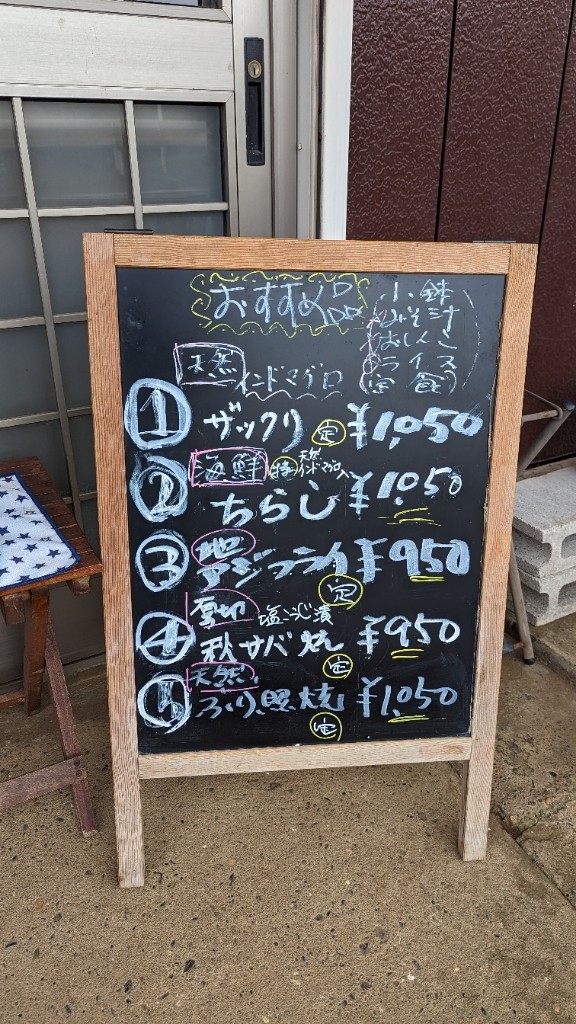 おすすめ
小鉢
みそ汁
おしんこ
ライス
(定食)
天然
インドマグロ
① ザックリ 定 ¥1,050
海鮮 特 天然インドマグロ入
② ちらし ¥1,050
地
③ アジフライ 定 ¥950
厚切 塩こうじ漬
④ 秋サバ焼 定 ¥950
天然
⑤ ぶり照焼 定 ¥1,050